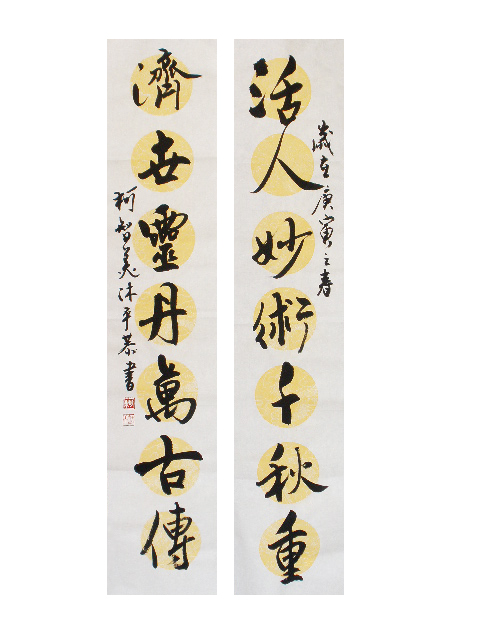 活人妙術千秋重
歲在庚寅之春
濟世靈丹萬古傳
柯智美沐平恭書